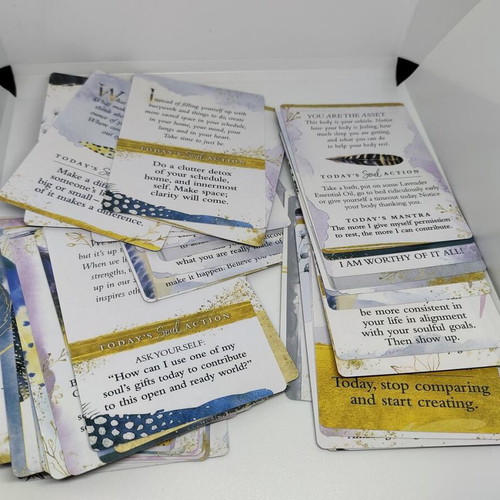 Instead of filling yourself up with
busywork and things to do create
more sacred space in your schedule,
in your home, your mind, your
lungs and in your heart.
Take time to just be.
TODAY'S Soul ACTION
Do a clutter detox
of your schedule,
home, and innermost
self. Make space;
clarity will come.
TODAY'S
Make a
someone's
big or small—
of it makes a difference.
what you are really
make it happen. Believe
but it's up
When we
strengths,
up in our
inspires
TODAY'S Soul ACTION
ASK YOURSELF:
"How can I use one of my
soul's gifts today to contribute
to this open and ready world?"
YOU ARE THE ASSET
This body is your vehicle. Notice
how your body is feeling, how
much sleep you are getting,
and what you can do
to help your body rest.
TODAY'S Soul ACTION
Take a bath, put on some Lavender
Essential Oil, go to bed ridiculously early
or give yourself a timeout today Notice
your body thanking you.
TODAY'S MANTRA
The more I give myself permission
to rest, the more I can contribute.
I AM WORTHY OF IT ALL!
be more consistent in
your life in alignment
with your soulful goals.
Then show up.
Today, stop comparing
and start creating.